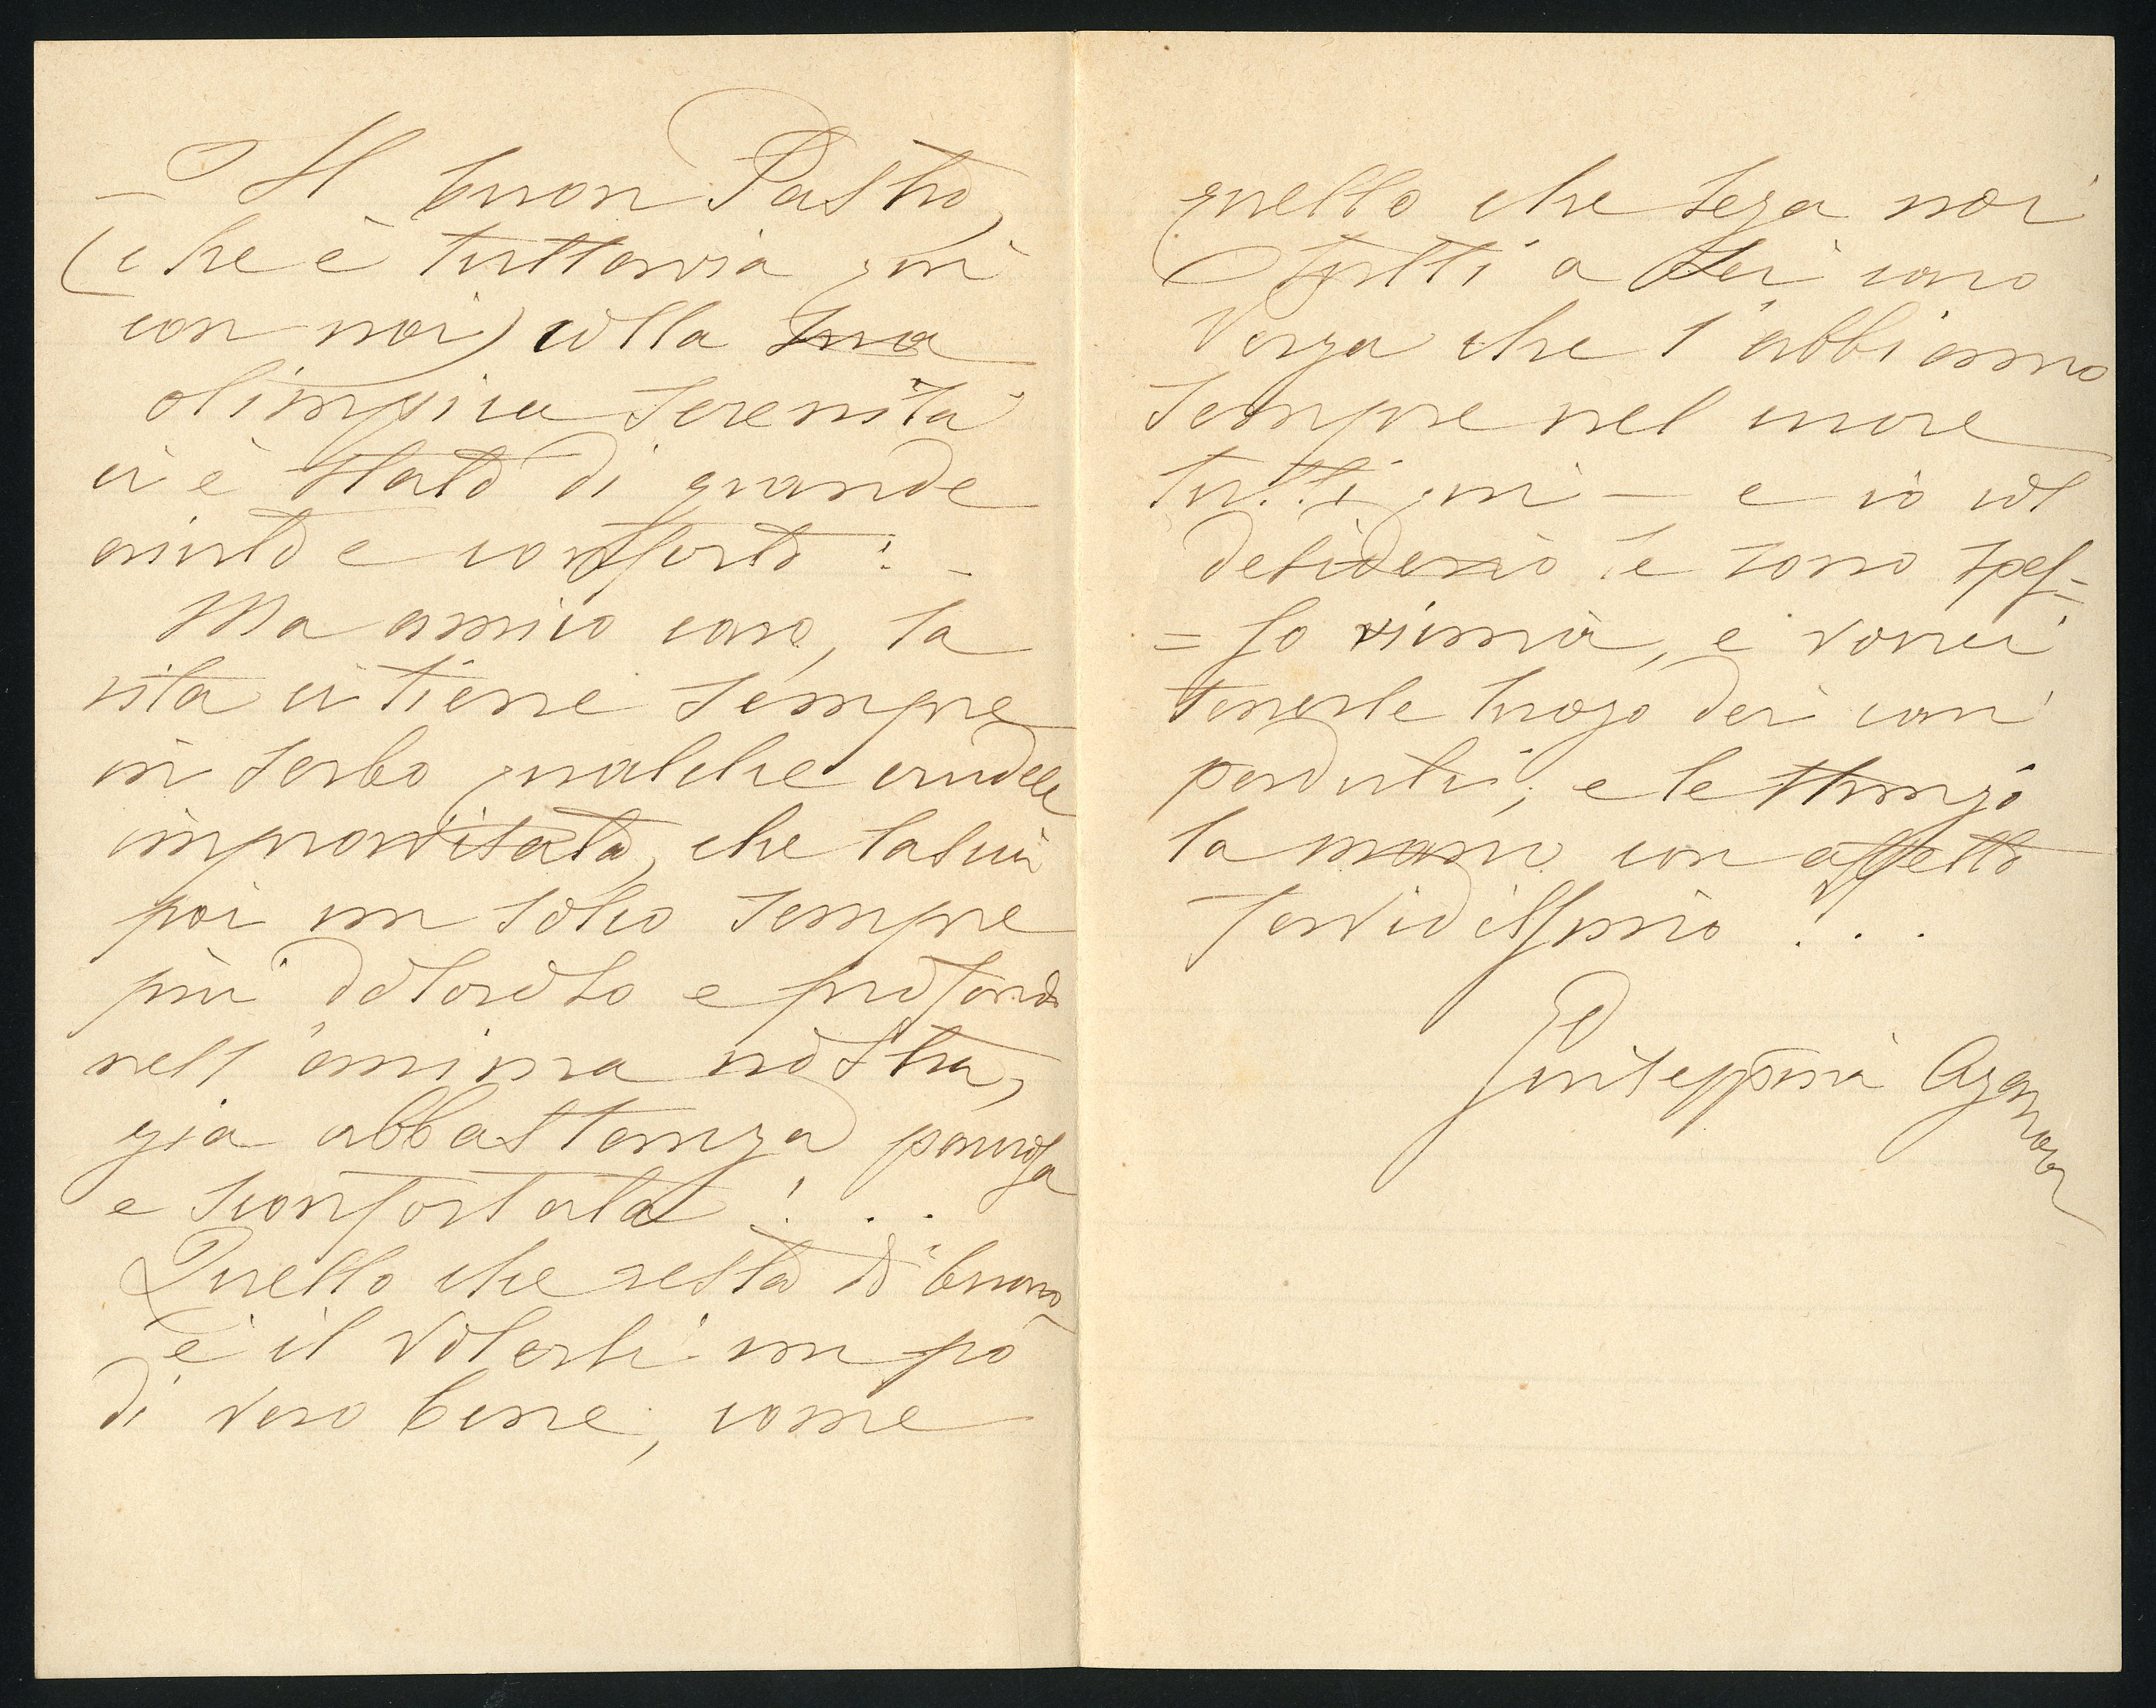 – Il buon Pastro,
(che è tuttavia qui
con noi) colla sua
olimpica serenità
ci è stato di grande
aiuto e conforto! –
Ma amico caro, la
vita ci tiene sempre
in serbo qualche crudele
improvvisata, che lascia
poi un solco sempre
più doloroso e profondo
nell'anima nostra,
già abbastanza paurosa
e sconfortata!...
Quello che resta di buono
è il volersi un po'
di vero bene, come
quello che lega noi
tutti a Lei caro
Verga che l'abbiamo
sempre nel cuore
tutti qui – e io col
desiderio le sono spes=
=so vicina, e vorrei
tenerle luogo dei cari
perduti; e le stringo
la mano con affetto
fervidissimo!..
Giuseppina